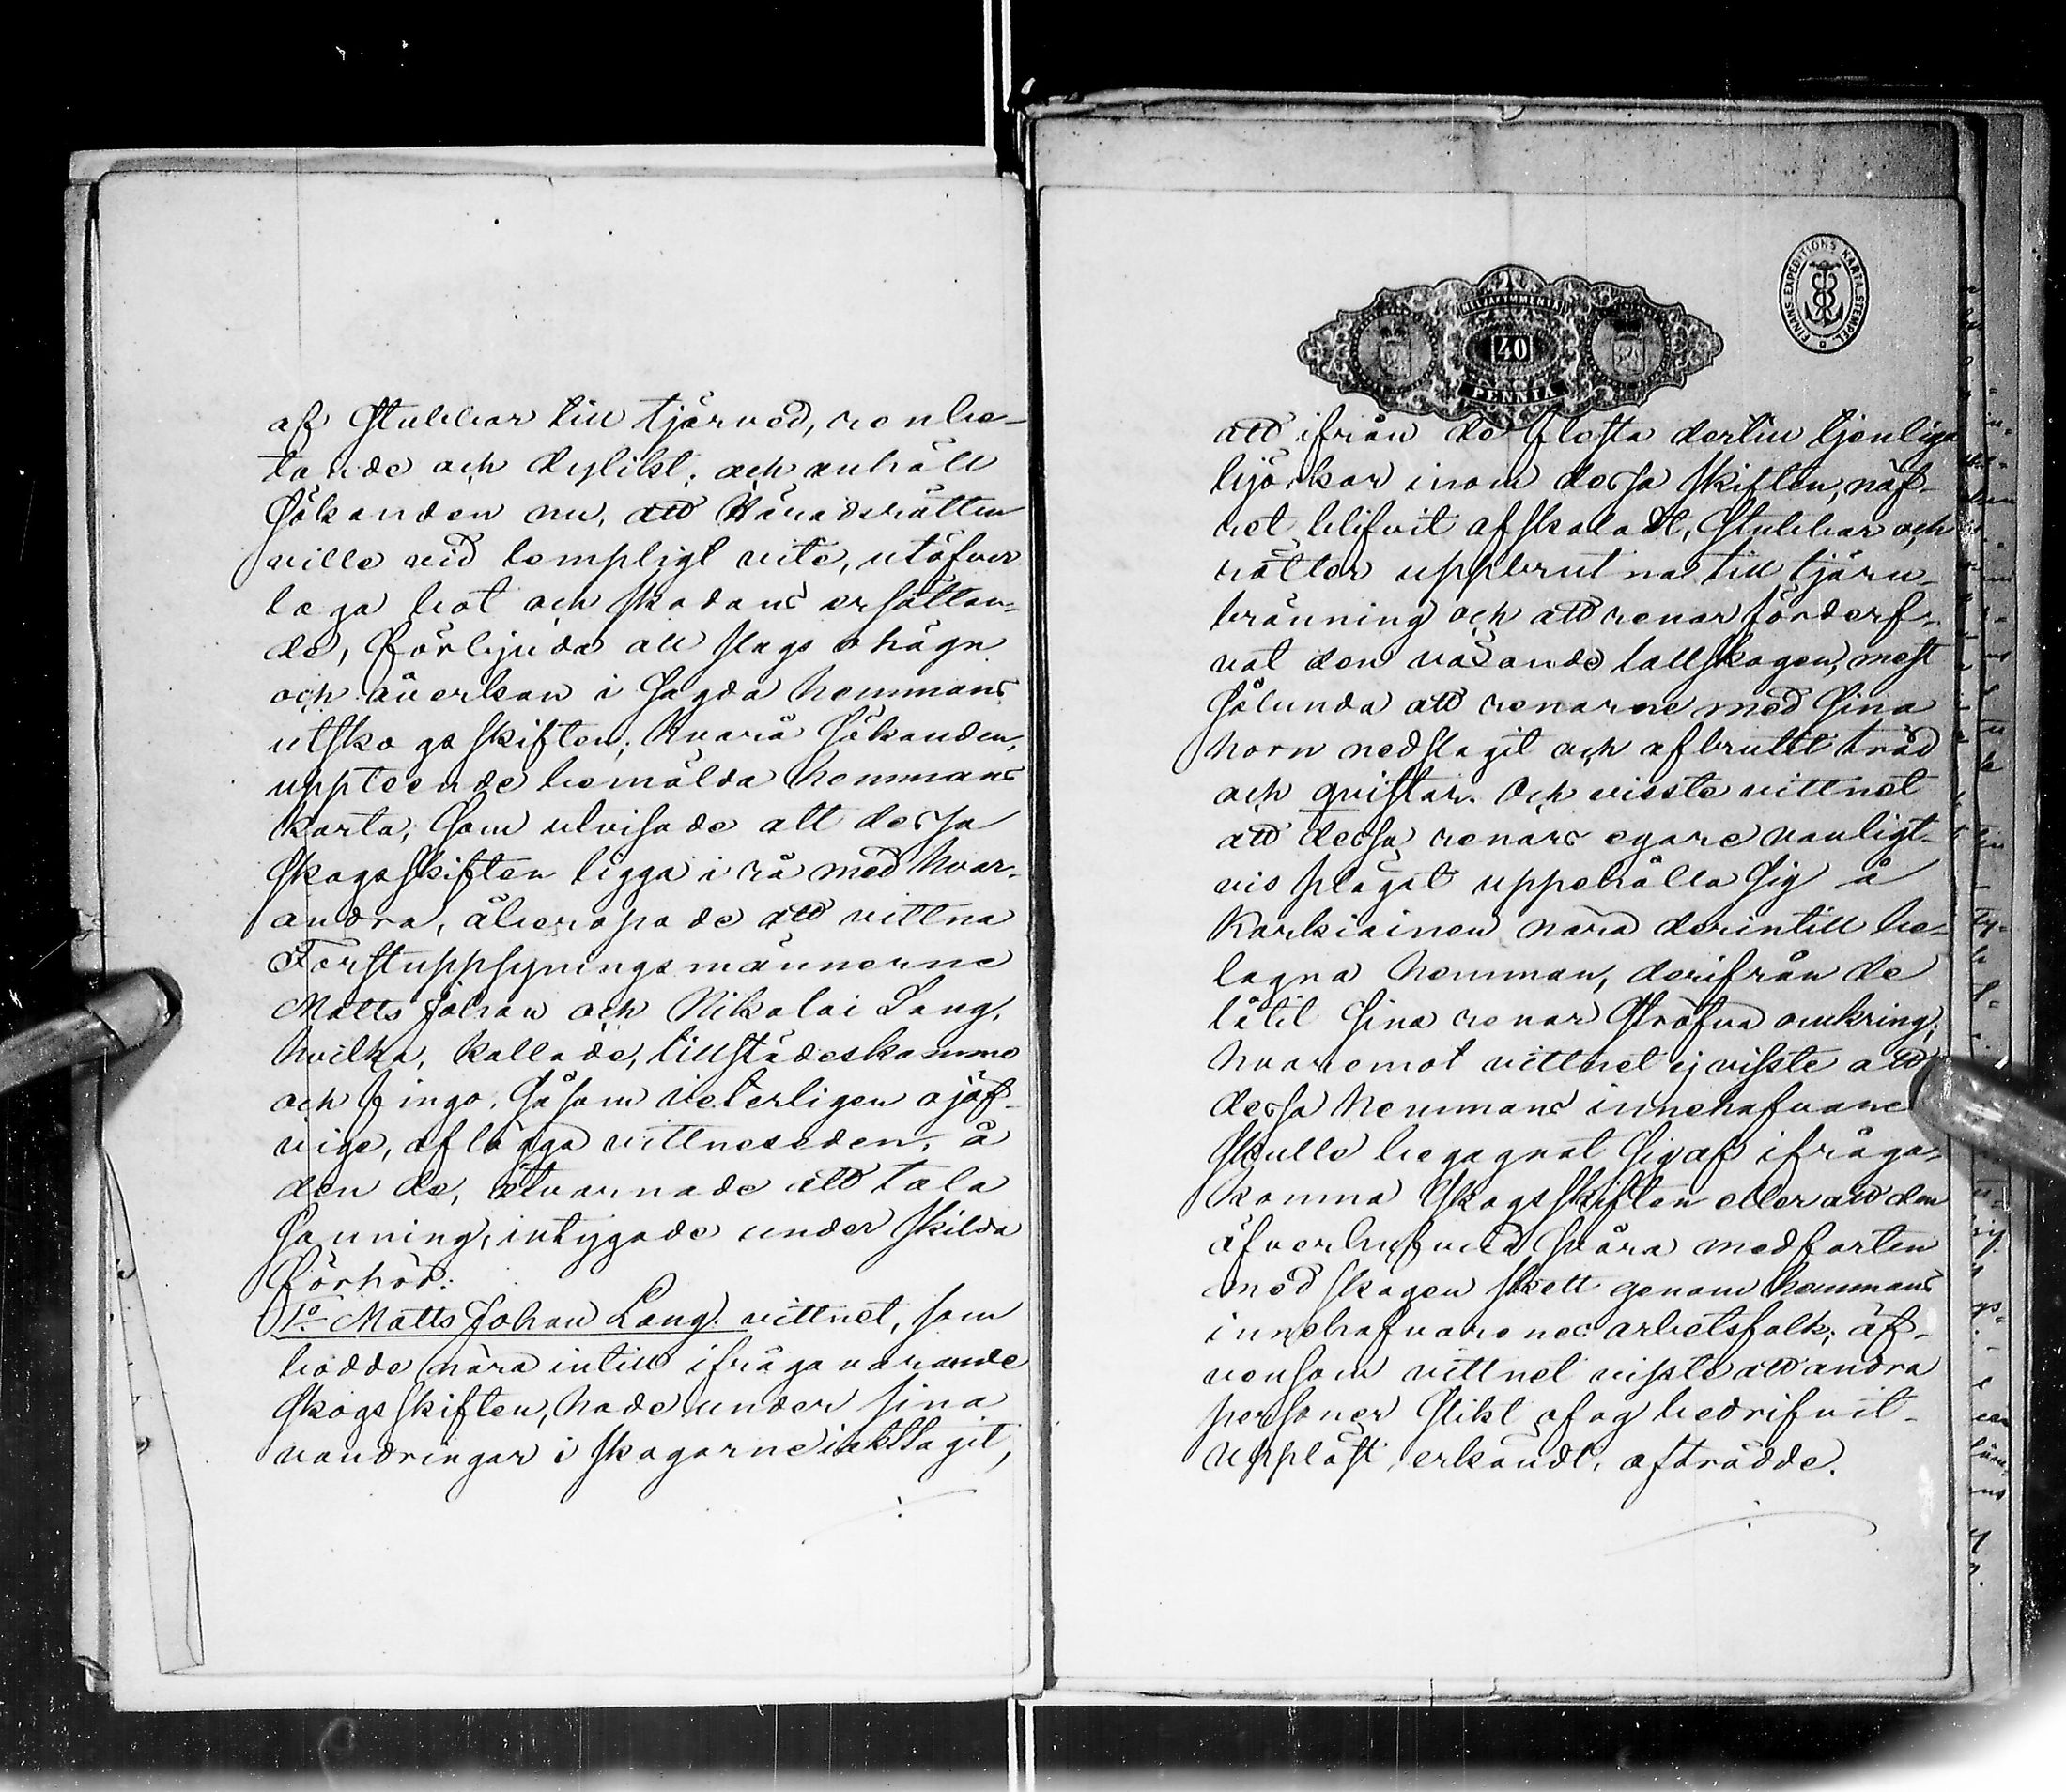 af Stubbar till tjärved, renbe-
tande och dylikt; och anhöll
Sökanden nu, att Häradsrätten
ville vid lempligt vite, utöfver
laga bot och skadans ersättan-
de, förbjuda all slags ohägn
och åverkan i sagda hemmans
utskogsskiften; hvarå Sökanden,
uppteende bemälda hemmans
karta, som utvisade att dessa
skogsskiften ligga i rå med hvar-
andra, åberopade att vittna
Forstuppsyningsmännerne
Matts Johan och Nikolai Lang,
hvilka, kallade, tillstädeskommo
och fingo, såsom veterligen ojäf-
vige, aflägga vittneseden, å
den de, åtvarnade att tala
sanning, intygade under skilda
förhör:
1o Matts Johan Lang: vittnet, som
bodde nära intill ifrågavarande
skogsskiften, hade under sina
vandringar i skogarne iakttagit,
FINANS-EXPEDITIONS KARTÆ STEMPEL
NELJÄKYMMENTÄ
40
PENNIÄ
att ifrån de flesta dertill tjenliga
björkar inom dessa skiften, näf-
ret blifvit afskaladt, Stubbar och
rötter uppbrutna till tjäru-
bränning och att renar förderf-
vat den växande tallskogen, mest
sålunda att renarne med sina
horn nedslagit och afbrutit träd
och qvistar. Och visste vittnet
att dessa renars egare vanligt-
vis plägat uppehålla sig å
Karkiainen nära derintill be-
lagna hemman, derifrån de
låtit sina renar ströfva omkring;
hvaremot vittnet ej visste att
dessa hemmans innehafvare
skulle begagnat sig af ifråga-
komna skogsskiften eller att den
öfverhufvud svåra medfarten
med skogen skett genom hemmans
innehafvarenes arbetsfolk; äf-
vensom vittnet visste att andra
personer slikt ofog bedrifvit.
Uppläst, erkändt, afträdde.